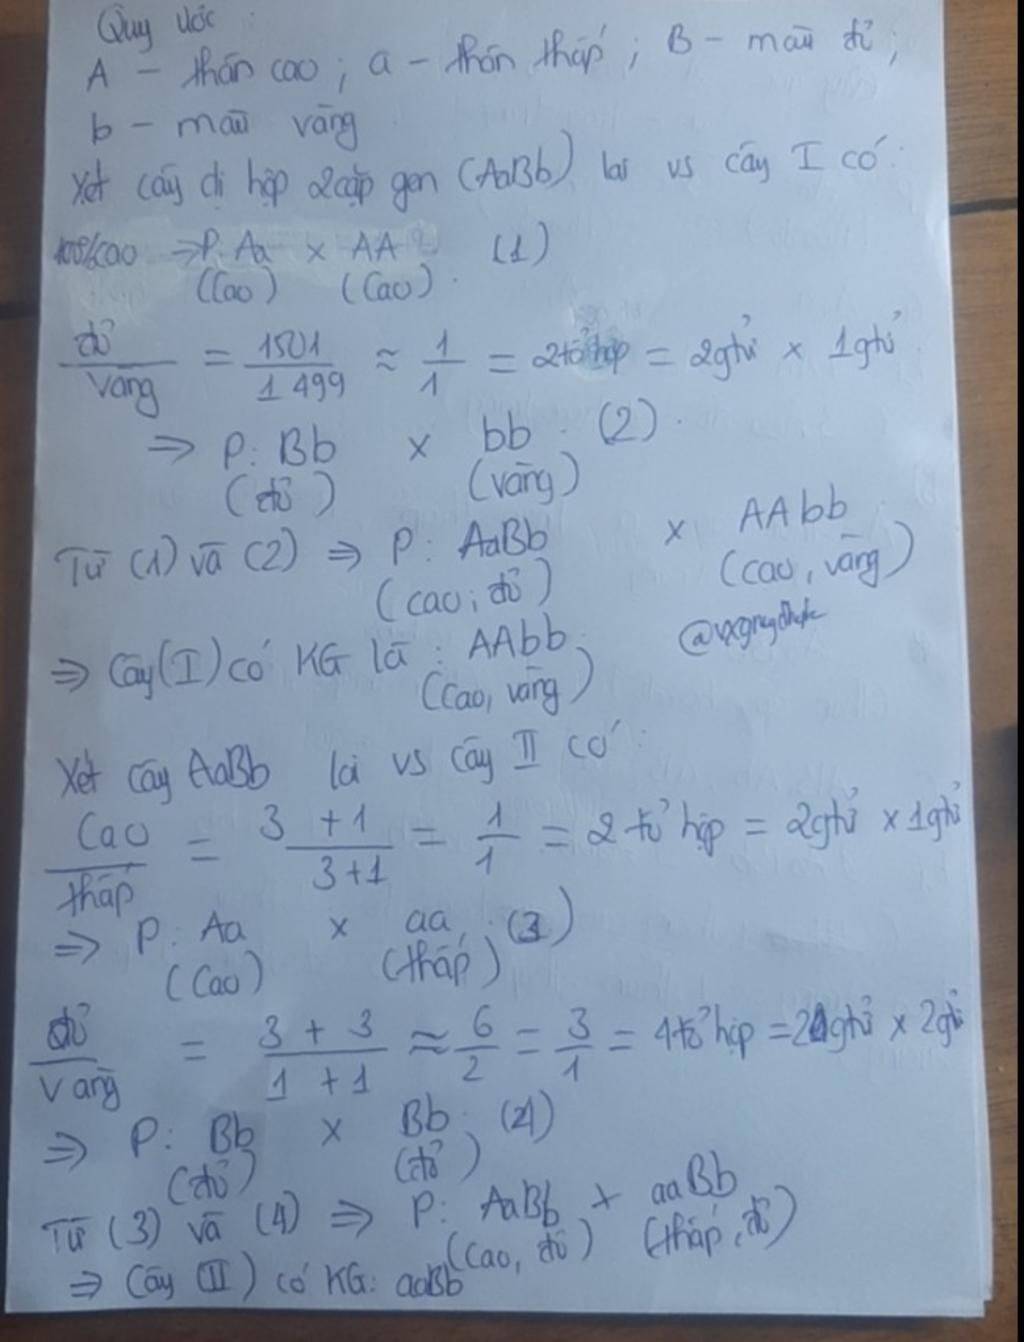 Quy ước :
A – thân cao ; a – thân thấp ; B – màu đỏ ;
b – màu vàng
Xét cây dị hợp 2 cặp gen (AaBb) lai vs cây I có :
100% cao ⇒ P: Aa × AA (1)
(Cao) (Cao)
đỏ / vàng = 1501 / 1499 ≈ 1 / 1 = 2 tổ hợp = 2 gtử × 1 gtử
⇒ P: Bb × bb (2)
(đỏ) (vàng)
Từ (1) và (2) ⇒ P: AaBb × AAbb
(cao, đỏ) (cao, vàng)
⇒ Cây (I) có KG là : AAbb
(Cao, vàng)
Xét cây AaBb lai vs cây II có :
Cao / thấp = 3 + 1 / 3 + 1 = 1 / 1 = 2 tổ hợp = 2 gtử × 1 gtử
⇒ P: Aa × aa (3)
(Cao) (thấp)
đỏ / vàng = 3 + 3 / 1 + 1 ≈ 6 / 2 = 3 / 1 = 4 tổ hợp = 2 gtử × 2 gtử
⇒ P: Bb × Bb (4)
(đỏ) (đỏ)
Từ (3) và (4) ⇒ P: AaBb × aaBb
(Cao, đỏ) (thấp, đỏ)
⇒ Cây (II) có KG: aaBb